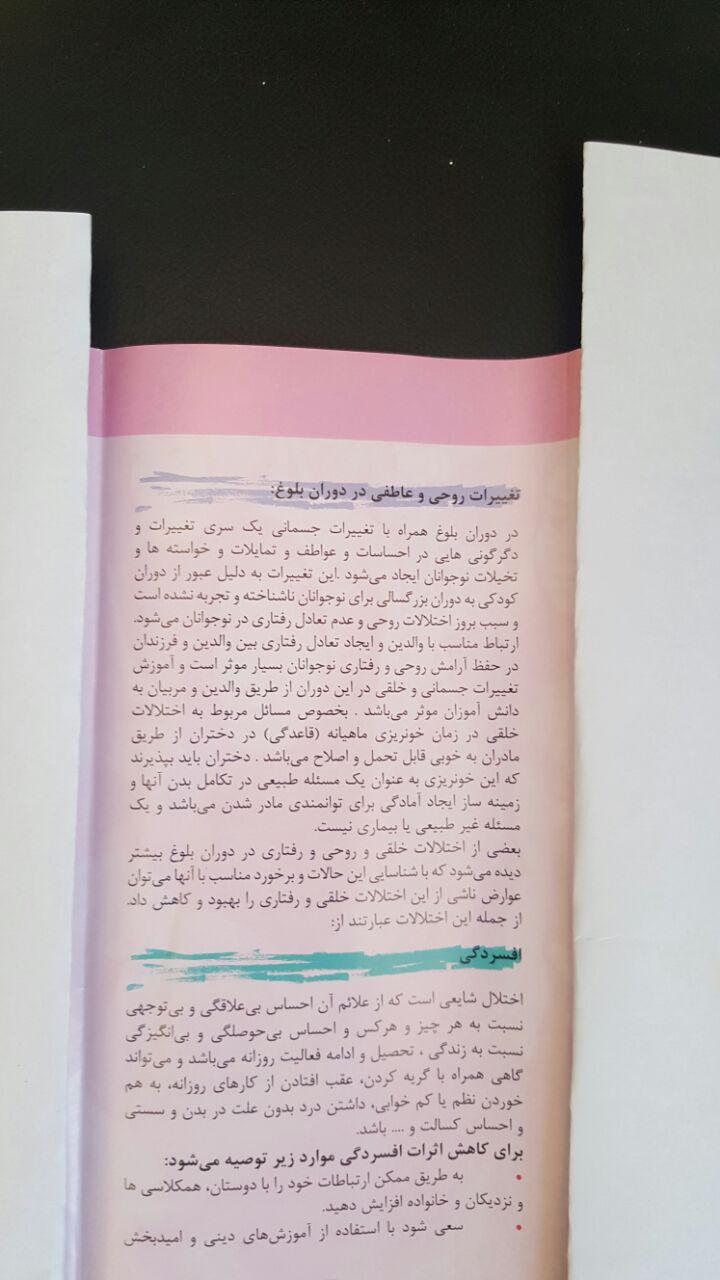 تغییرات روحی و عاطفی در دوران بلوغ:
در دوران بلوغ همراه با تغییرات جسمانی یک سری تغییرات و
دگرگونی هایی در احساسات و عواطف و تمایلات و خواسته ها و
تخیلات نوجوانان ایجاد می‌شود .این تغییرات به دلیل عبور از دوران
کودکی به دوران بزرگسالی برای نوجوانان ناشناخته و تجربه نشده است
و سبب بروز اختلالات روحی و عدم تعادل رفتاری در نوجوانان می‌شود.
ارتباط مناسب با والدین و ایجاد تعادل رفتاری بین والدین و فرزندان
در حفظ آرامش روحی و رفتاری نوجوانان بسیار موثر است و آموزش
تغییرات جسمانی و خلقی در این دوران از طریق والدین و مربیان به
دانش آموزان موثر می‌باشد . بخصوص مسائل مربوط به اختلالات
خلقی در زمان خونریزی ماهیانه (قاعدگی) در دختران از طریق
مادران به خوبی قابل تحمل و اصلاح می‌باشد . دختران باید بپذیرند
که این خونریزی به عنوان یک مسئله طبیعی در تکامل بدن آنها و
زمینه ساز ایجاد آمادگی برای توانمندی مادر شدن می‌باشد و یک
مسئله غیر طبیعی یا بیماری نیست.
بعضی از اختلالات خلقی و روحی و رفتاری در دوران بلوغ بیشتر
دیده می‌شود که با شناسایی این حالات و برخورد مناسب با آنها می‌توان
عوارض ناشی از این اختلالات خلقی و رفتاری را بهبود و کاهش داد.
از جمله این اختلالات عبارتند از:
افسردگی
اختلال شایعی است که از علائم آن احساس بی‌علاقگی و بی‌توجهی
نسبت به هر چیز و هرکس و احساس بی‌حوصلگی و بی‌انگیزگی
نسبت به زندگی ، تحصیل و ادامه فعالیت روزانه می‌باشد و می‌تواند
گاهی همراه با گریه کردن، عقب افتادن از کارهای روزانه، به هم
خوردن نظم یا کم خوابی، داشتن درد بدون علت در بدن و سستی
و احساس کسالت و .... باشد.
برای کاهش اثرات افسردگی موارد زیر توصیه می‌شود:
• به طریق ممکن ارتباطات خود را با دوستان، همکلاسی ها
و نزدیکان و خانواده افزایش دهید.
• سعی شود با استفاده از آموزش‌های دینی و امیدبخش